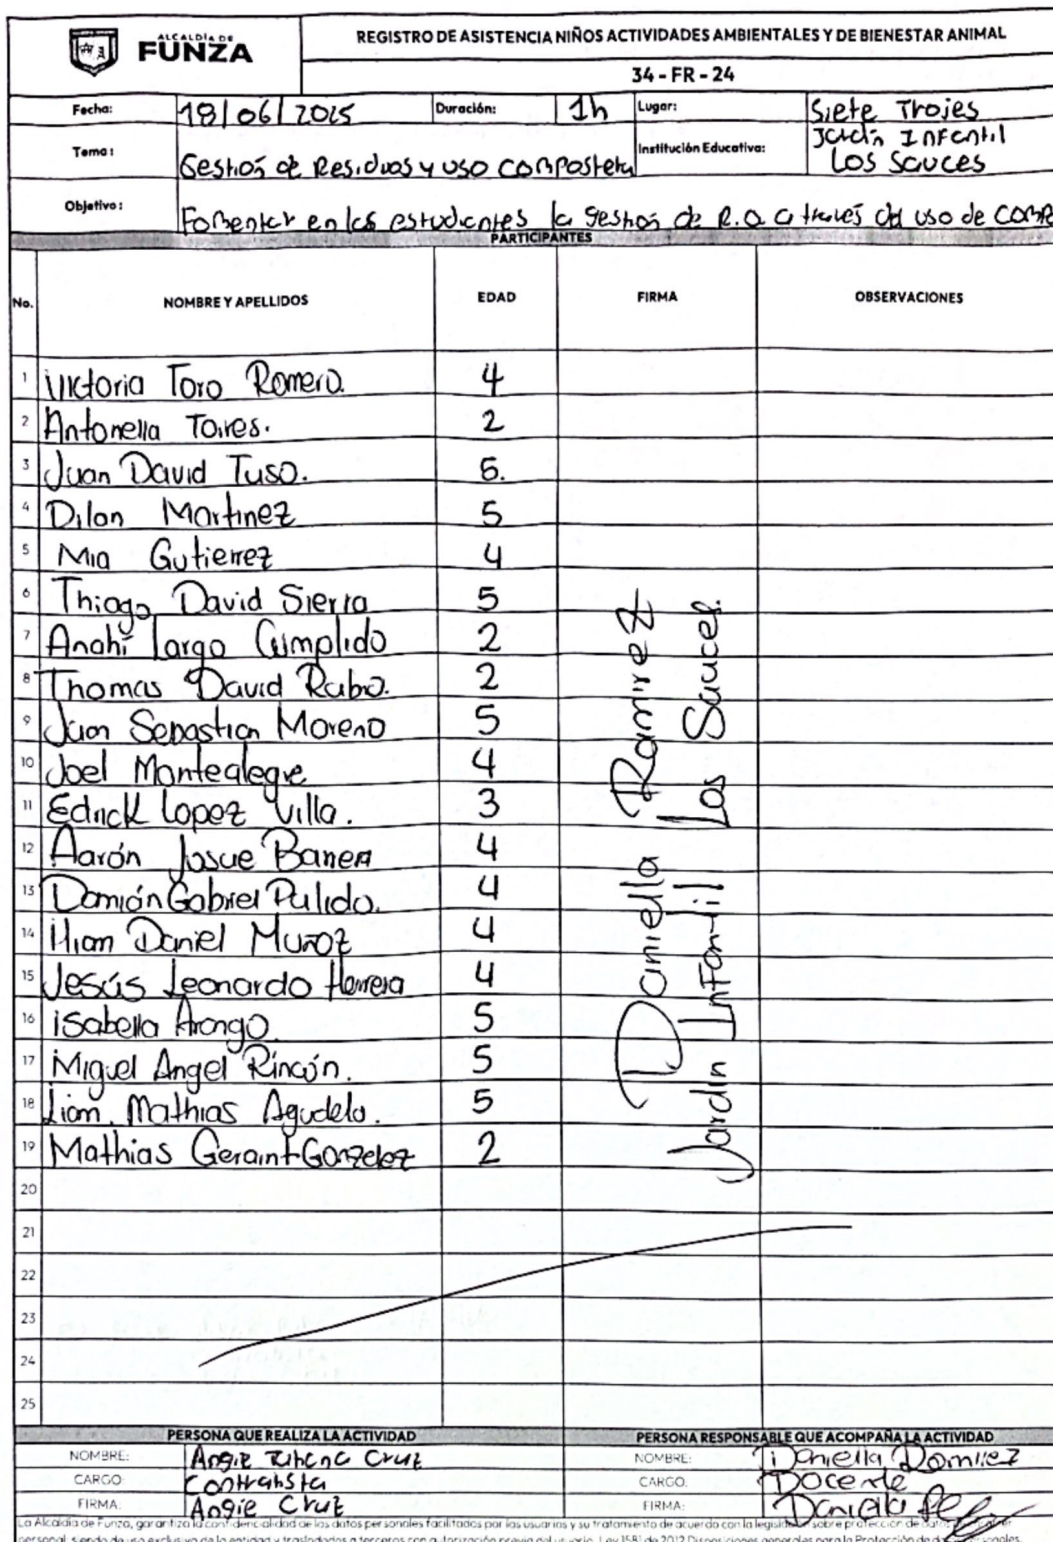 ALCALDÍA DE
FUNZA
REGISTRO DE ASISTENCIA NIÑOS ACTIVIDADES AMBIENTALES Y DE BIENESTAR ANIMAL
34 - FR - 24
Fecha: 18/06/2025 Duración: 1h Lugar: Siete Trojes
Tema: Gestión de Residuos y uso compostera Institución Educativa: Jardín Infantil Los Sauces
Objetivo: Fomentar en los estudiantes la gestión de R.O. a través del uso de comp
PARTICIPANTES
No. NOMBRE Y APELLIDOS EDAD FIRMA OBSERVACIONES
1 Victoria Toro Romero. 4
2 Antonella Torres. 2
3 Juan David Tuso. 5.
4 Dilan Martinez 5
5 Mia Gutierrez 4
6 Thiago David Sierra 5
7 Anahí Largo Cumplido 2
8 Thomas David Rubio. 2
9 Juan Sebastian Moreno 5
10 Joel Montealegre 4
11 Edrick Lopez Villa. 3
12 Aarón Josue 4
13 Damián Gabriel Pulido. 4
14 Daniel Muñoz 4
15 Jesús Leonardo Herrera 4
16 isabella Arango 5
17 Miguel Angel Rincón. 5
18 Liam. Mathias Agudelo. 5
19 Mathias Geraint Gonzelez 2
Daniella Ramirez
Jardin Infantil Los Sauces.
20
21
22
23
24
25
PERSONA QUE REALIZA LA ACTIVIDAD PERSONA RESPONSABLE QUE ACOMPAÑA LA ACTIVIDAD
NOMBRE: Angie Cruz NOMBRE: Daniella
CARGO: Contratista CARGO: Docente
FIRMA: Angie Cruz FIRMA: Daniella
La Alcaldía de Funza, garantiza la confidencialidad de los datos personales facilitados por los usuarios y su tratamiento de acuerdo con la legislación sobre protección de datos
personal, siendo de uso exclusivo de la entidad y trasladados a terceros con autorización previa del usuario. Ley 1581 de 2012 Disposiciones generales para la Protección de datos personales.